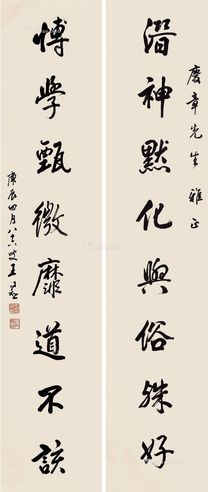 慶章先生雅正
潛神默化與俗殊好
博學甄微靡道不該
庚辰四月八十六叟王